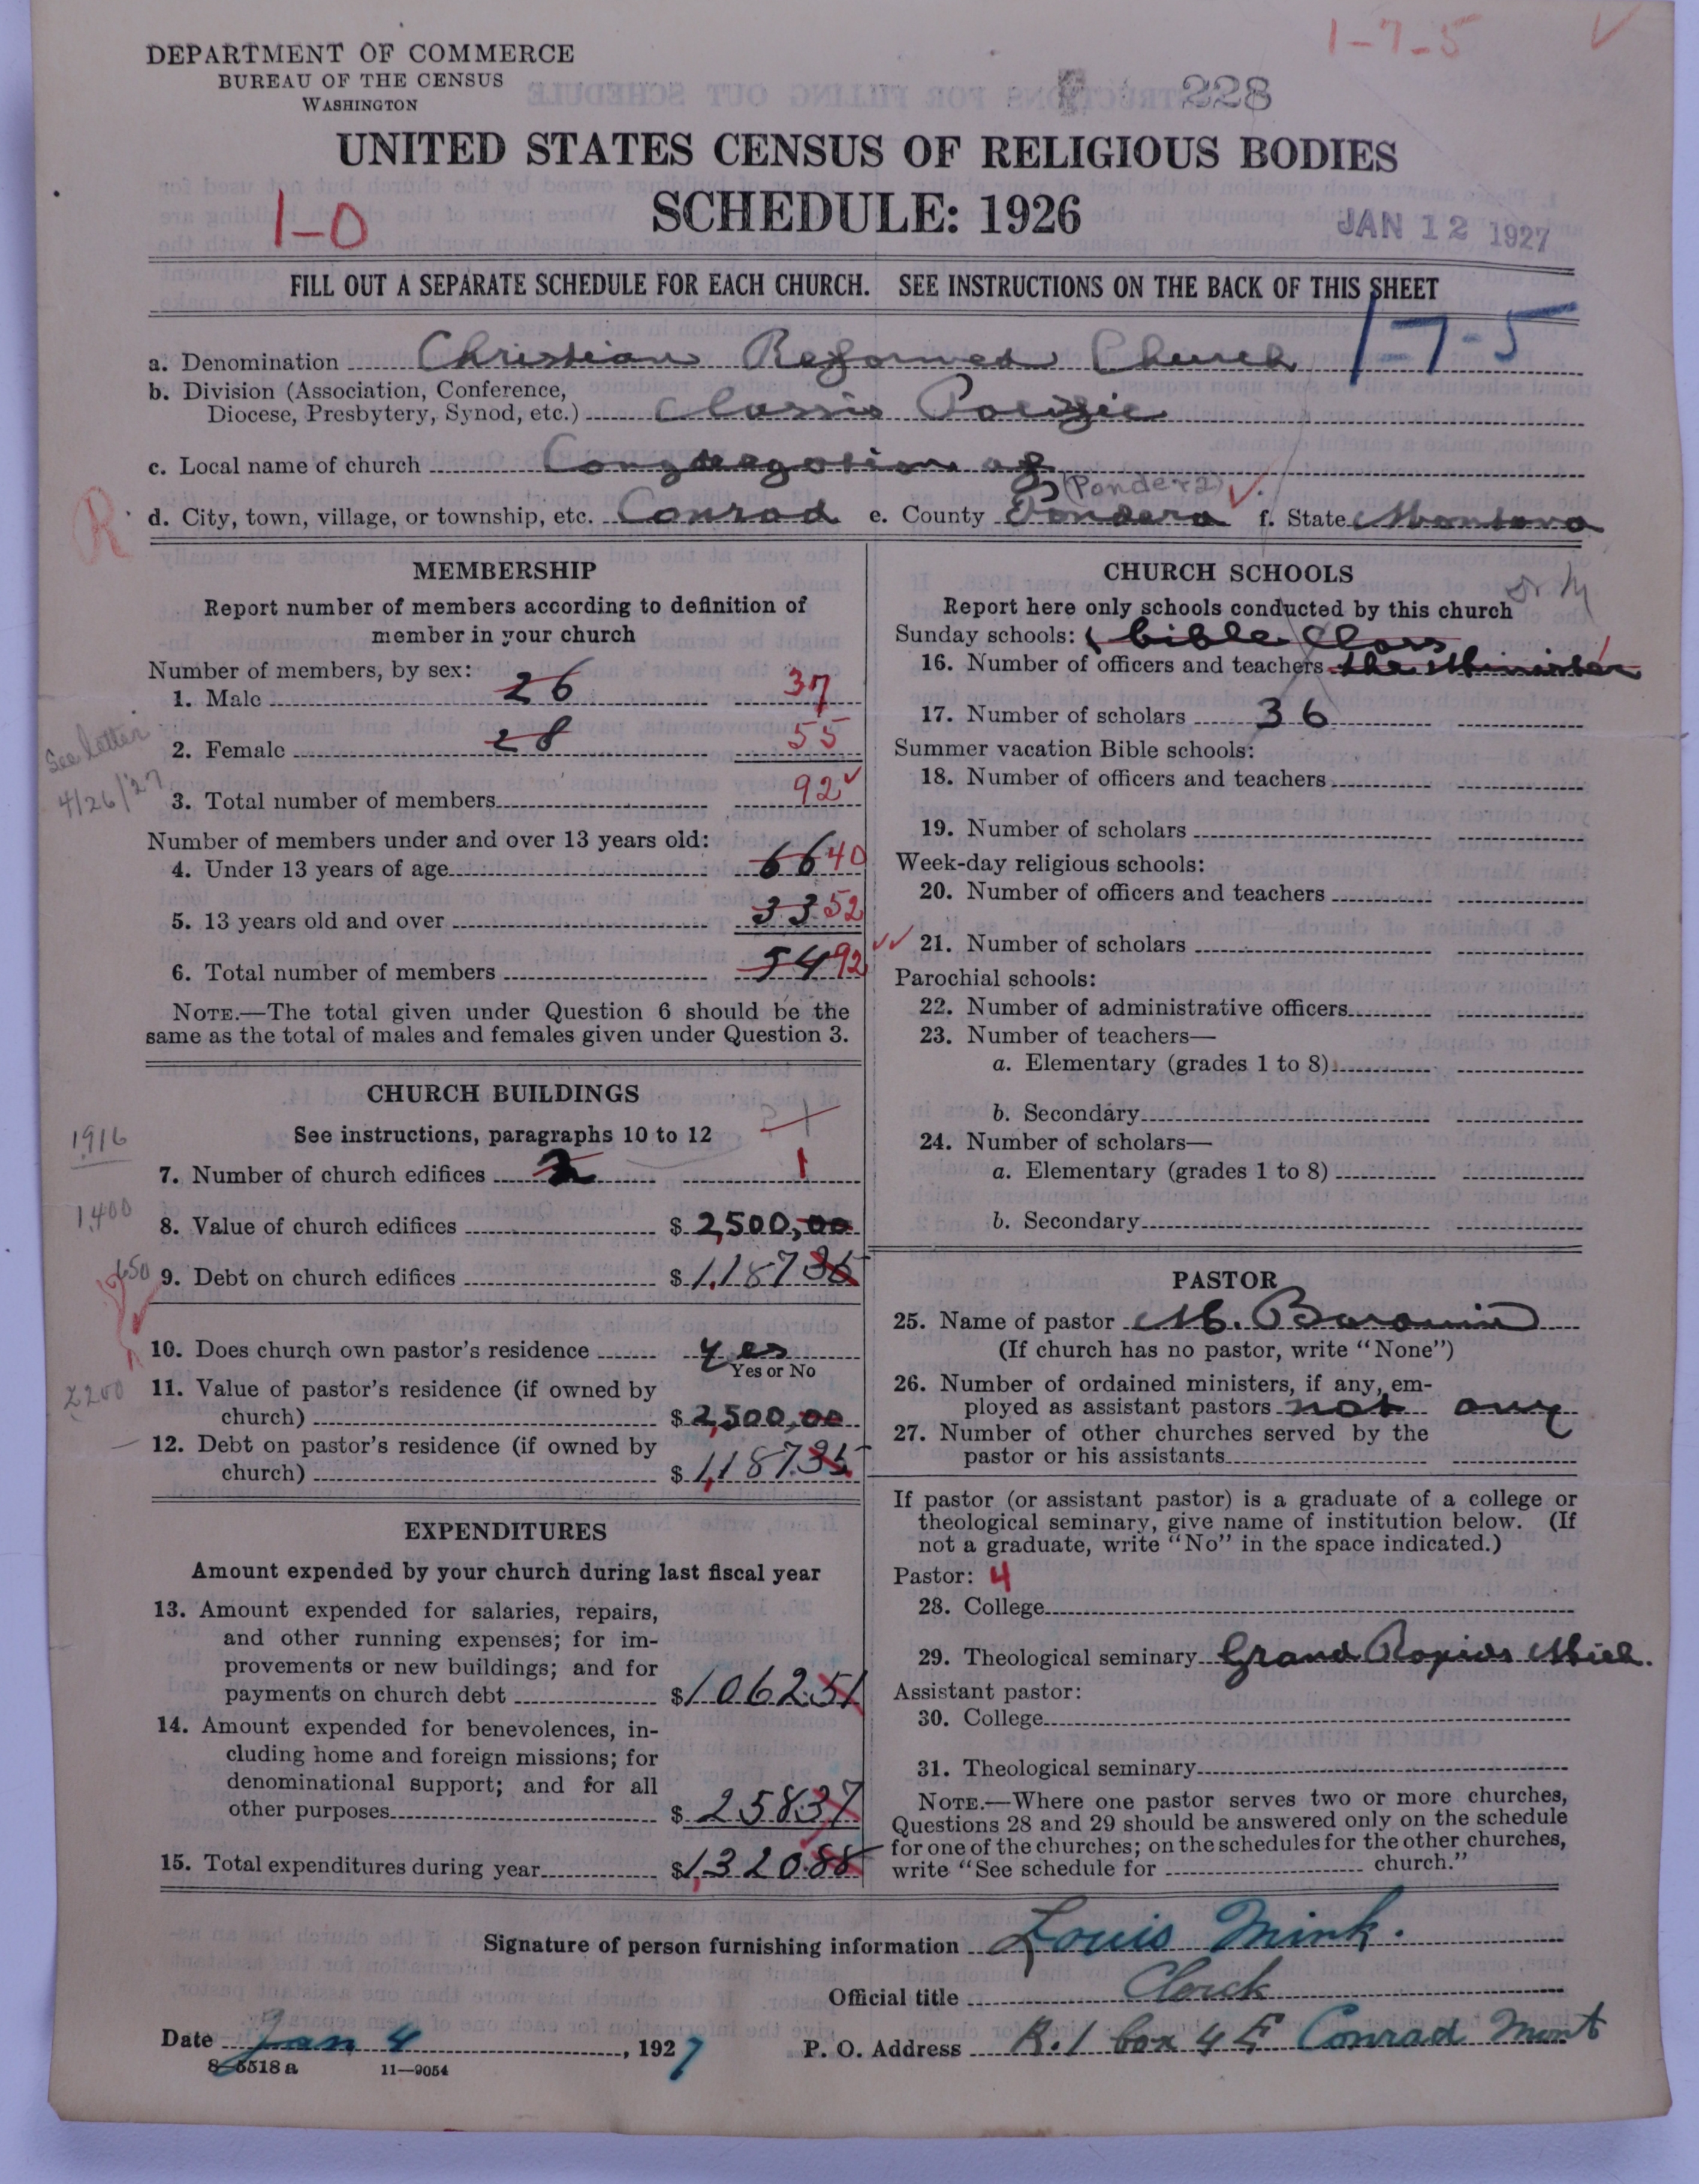 1-7-5
DEPARTMENT OF COMMERCE
BUREAU OF THE CENSUS
WASHINGTON
228
UNITED STATES CENSUS OF RELIGIOUS BODIES
SCHEDULE: 1926
1-0
JAN 12 1927
FILL OUT A SEPARATE SCHEDULE FOR EACH CHURCH. SEE INSTRUCTIONS ON THE BACK OF THIS SHEET
1-7-5
a. Denomination Christian Reformed Church
b. Division (Association, Conference,
Diocese, Presbytery, Synod, etc.) Classis Pacific
c. Local name of church Congregation of
(Pondera)
R
d. City, town, village, or township, etc. Conrad e. County Pondera f. State Montana
MEMBERSHIP
Report number of members according to definition of
member in your church
Number of members, by sex:
1. Male 26 37
2. Female 28 55
See letter
4/26/27
3. Total number of members 92
Number of members under and over 13 years old:
4. Under 13 years of age 66 40
5. 13 years old and over 33 52
6. Total number of members 54 92
NOTE.—The total given under Question 6 should be the
same as the total of males and females given under Question 3.
CHURCH BUILDINGS
See instructions, paragraphs 10 to 12
1916
7. Number of church edifices 2 1
1400
8. Value of church edifices $ 2,500,00
650
9. Debt on church edifices $ 1,187 36
10. Does church own pastor's residence yes
Yes or No
2200
11. Value of pastor's residence (if owned by
church) $ 2,500,00
12. Debt on pastor's residence (if owned by
church) $ 1,187.35
EXPENDITURES
Amount expended by your church during last fiscal year
13. Amount expended for salaries, repairs,
and other running expenses; for im-
provements or new buildings; and for
payments on church debt $ 1062 51
14. Amount expended for benevolences, in-
cluding home and foreign missions; for
denominational support; and for all
other purposes $ 258 37
15. Total expenditures during year $ 1,320.88
CHURCH SCHOOLS
Report here only schools conducted by this church
Sunday schools: (bible Class
16. Number of officers and teachers the Minister
17. Number of scholars 36
Summer vacation Bible schools:
18. Number of officers and teachers
19. Number of scholars
Week-day religious schools:
20. Number of officers and teachers
21. Number of scholars
Parochial schools:
22. Number of administrative officers
23. Number of teachers—
a. Elementary (grades 1 to 8)
b. Secondary
24. Number of scholars—
a. Elementary (grades 1 to 8)
b. Secondary
PASTOR
25. Name of pastor M.
(If church has no pastor, write "None")
26. Number of ordained ministers, if any, em-
ployed as assistant pastors not any
27. Number of other churches served by the
pastor or his assistants
If pastor (or assistant pastor) is a graduate of a college or
theological seminary, give name of institution below. (If
not a graduate, write "No" in the space indicated.)
Pastor: 4
28. College
29. Theological seminary Grand Rapids Mich.
Assistant pastor:
30. College
31. Theological seminary
NOTE.—Where one pastor serves two or more churches,
Questions 28 and 29 should be answered only on the schedule
for one of the churches; on the schedules for the other churches,
write "See schedule for church."
Signature of person furnishing information Louis Mink.
Official title Clerck
Date Jan 4, 1927 P. O. Address R.1 box 4 E Conrad Mont
8-5518 a 11—9054